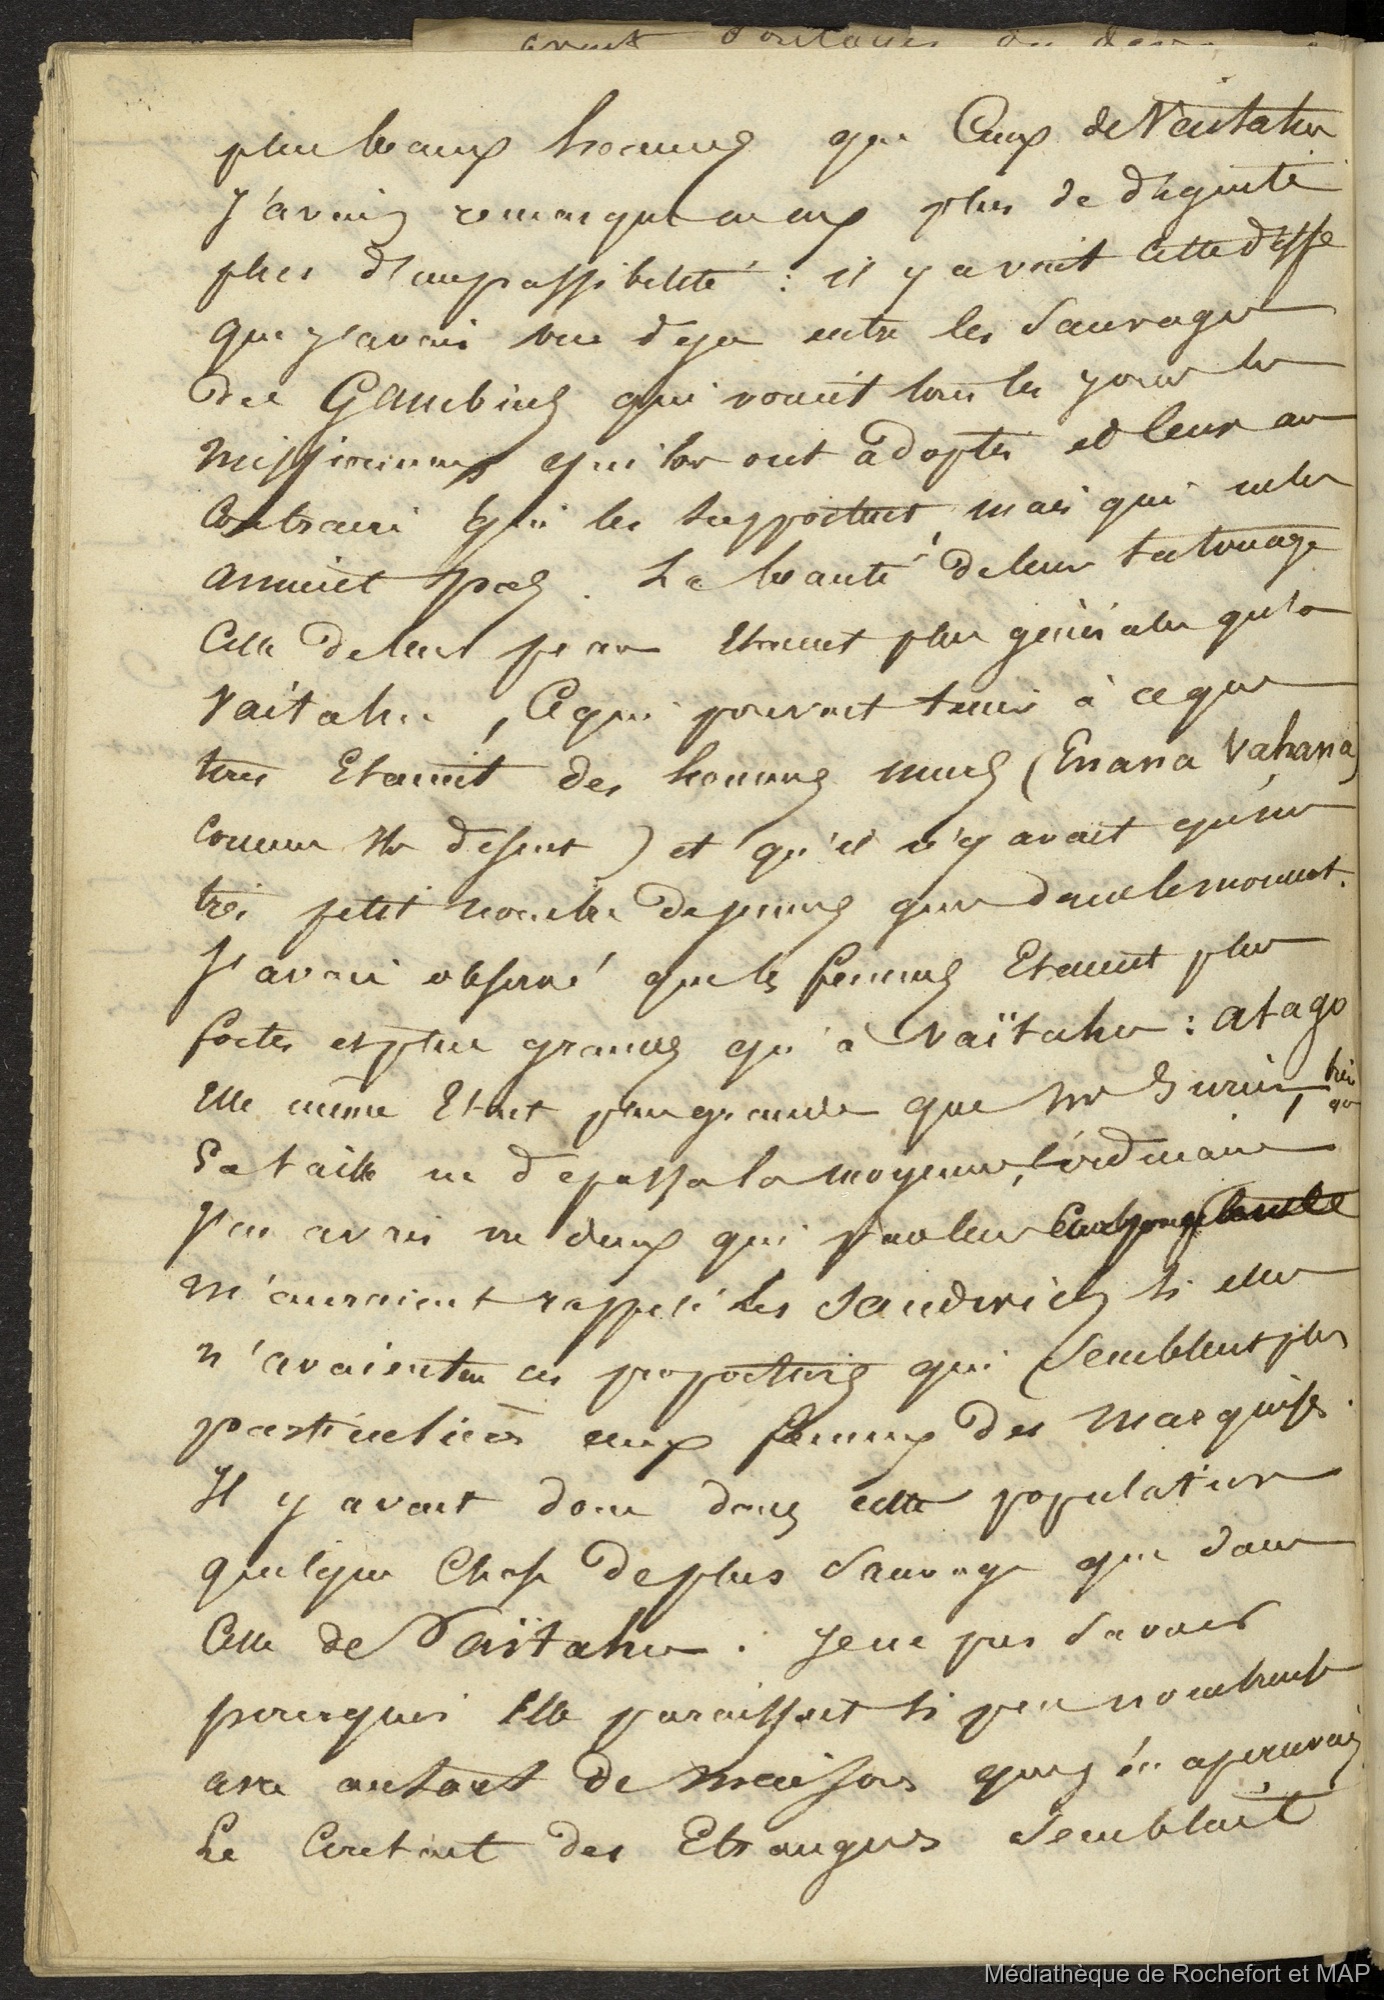 plus beaux hommes que Ceux de Vaitahu
J'avais remarqué en eux plus de dignité
plus d'impassibilité : il y avait cette diffe
que j'avais vue deja entre les Sauvages
des Gambiers qui voient tous les jours les
missionnaires qui les ont adoptés et leur au
Contraire qui les supportent mais qui ne les
aiment pas. La beauté de leur tatouage
Celle de leur peau Etaient plus générales qu'a
Vaitahu, Ce qui pouvait tenir à ce que
tous Etaient des hommes murs (Enana Vahana
comme ils disent) et qu'il n'y avait qu'un
très petit nombre de jeunes gens dans le moment.
J'avais observé que les femmes Etaient plus
fortes et plus grandes qu'à Vaïtahu : atago
Elle même Etait plus grande que
Sa taille ne depassa la moyenne, l'ordinaire
J'en avais vu deux qui par leur
m'auraient rappelé les Sandwich si elles
n'avaient eu ces proportions qui Semblent plus
particulières aux femmes des Marquises.
Il y avait donc dans cette population
quelque Chose de plus Sauvage que dans
Celle de Vaïtahu. Je ne pus Savoir
pourquoi Elle paraissait si peu nombreuse
avec autant de maisons que j'en apercevais
Le Contact des Etrangers Semblait
Médiathèque de Rochefort et MAP